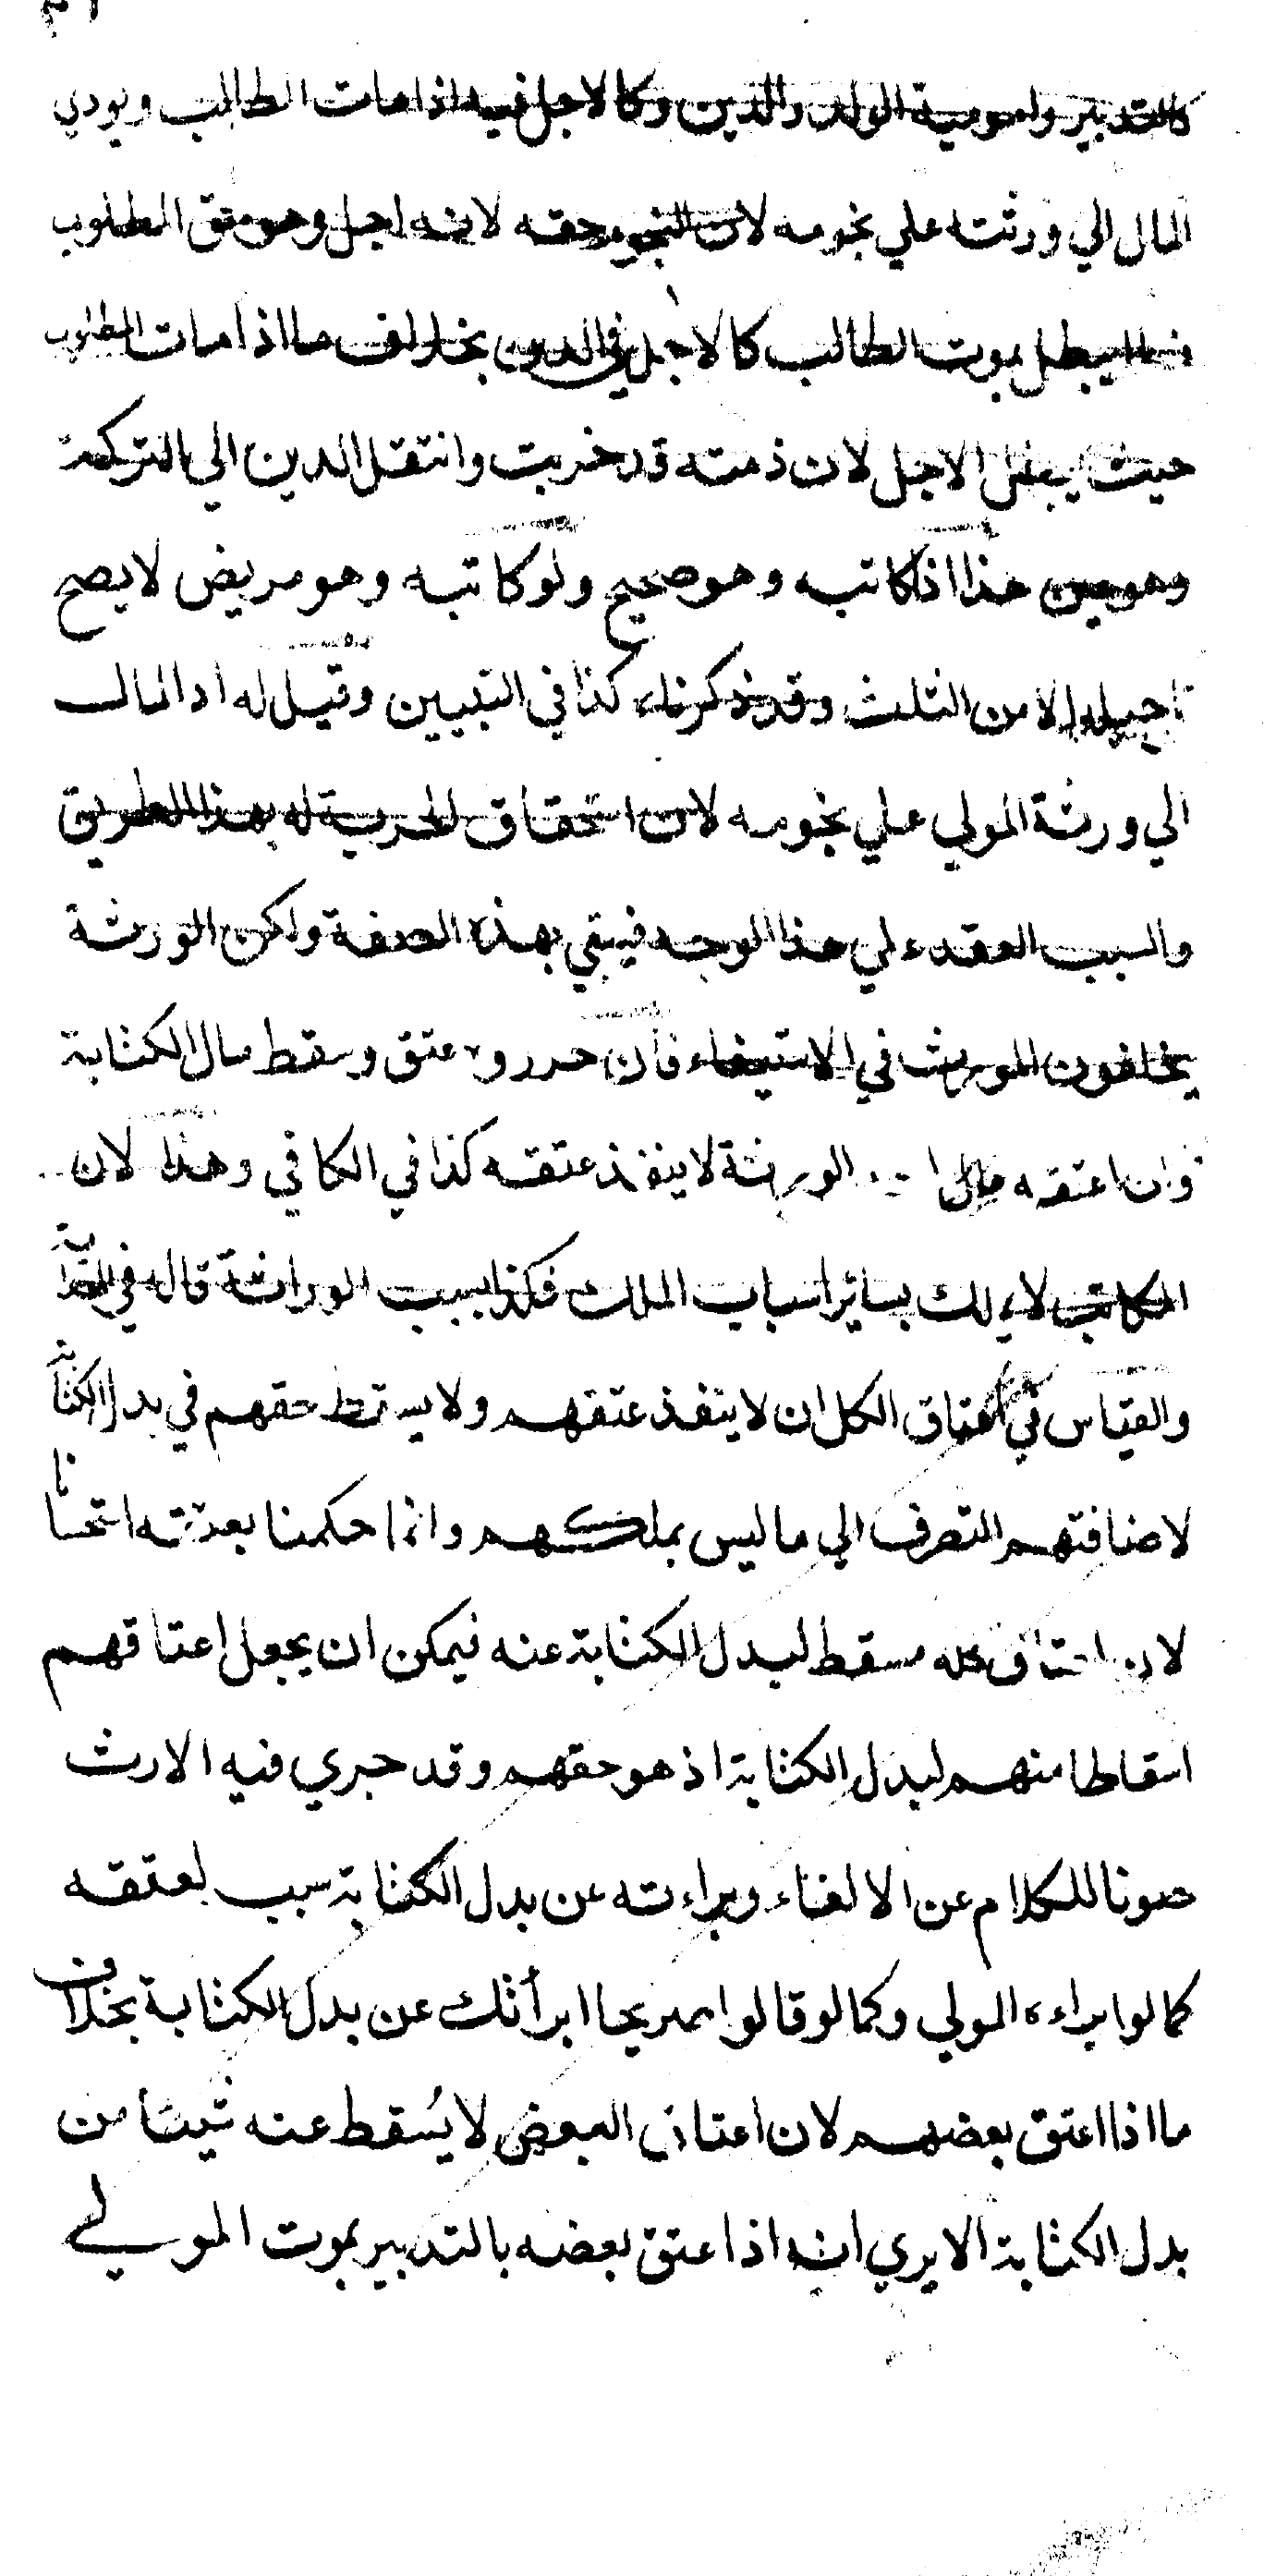 كالتدبير وامومية الولد والدين وكالاجل فيه اذا مات الطالب ويودي
المال الي ورثته علي نجومه لان النجوم حقه لانه اجل وهو حق المطلوب
فلا يبطل بموت الطالب كالاجل في الدين بخلاف ما اذا مات المطلوب
حيث يبطل الاجل لان ذمته قد خربت وانتقل الدين الي التركة
وهو عين هذا اذا كاتبه وهو صحيح ولو كاتبه وهو مريض لا يصح
تاجيله الا من الثلث وقد ذكرناه كذا في التبيين وقيل له اد المال
الي ورثة المولي علي نجومه لان استحقاق الحرية له بهذا الطريق
والسبب انعقد علي هذا الوجه فيبقي بهذه الصفة ولكن الورثة
يخلفون المورث في الاستيفاء فان حرروه عتق وسقط مال الكتابة
وان اعتقه الورثة لا ينفذ عتقه كذا في الكافي وهذا لان
المكاتب لا يملك بسائر اسباب الملك فكذا بسبب الوراثة قاله في الهداية
والقياس في اعتاق الكل ان لا ينفذ عتقهم ولا يسقط حقهم في بدل الكتابة
لاضافتهم التصرف الي ما ليس بملكهم وانما حكمنا بعتقه استحسانا
لان اعتاق كله مسقط لبدل الكتابة عنه فيمكن ان يجعل اعتاقهم
اسقاطا منهم لبدل الكتابة اذ هو حقهم وقد جري فيه الارث
صونا للكلام عن الالغاء وبراءته عن بدل الكتابة سبب لعتقه
كما لو ابراءه المولي وكما لو قالوا صريحا ابرأتك عن بدل الكتابة بخلاف
ما اذا اعتق بعضهم لان اعتاق البعض لا يُسقط عنه شيئا من
بدل الكتابة الا يري انه اذا عتق بعضه بالتدبير بموت المولي